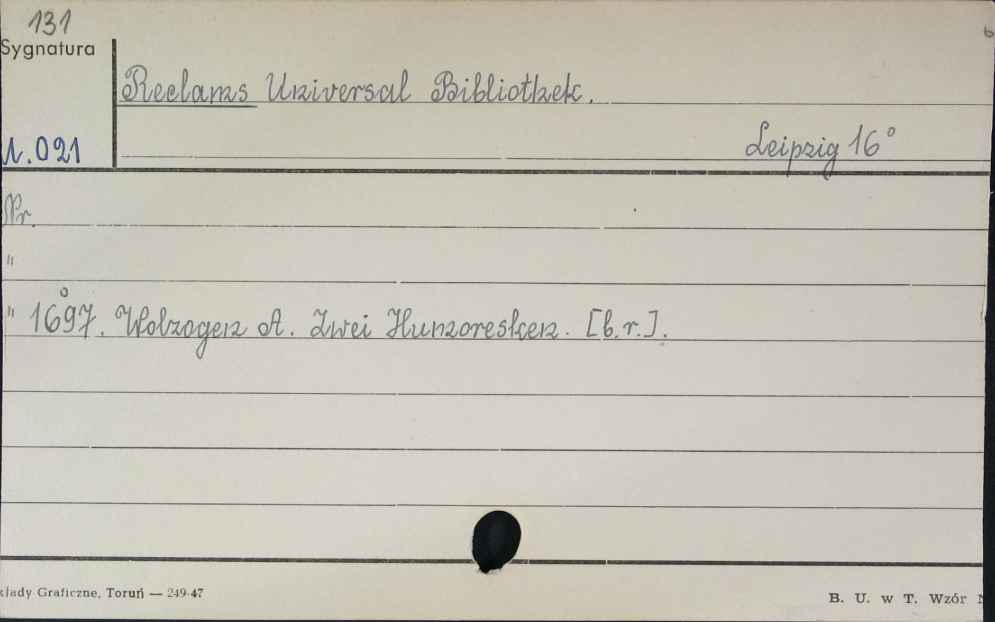 131
Sygnatura
Reclams Universal Bibliothek.
Leipzig 16°
1.021
Nr.
"
" 1697. Wolzogen A. Zwei Humoresken. [b.r.].
kłady Graficzne, Toruń — 249-47
B. U. w T. Wzór